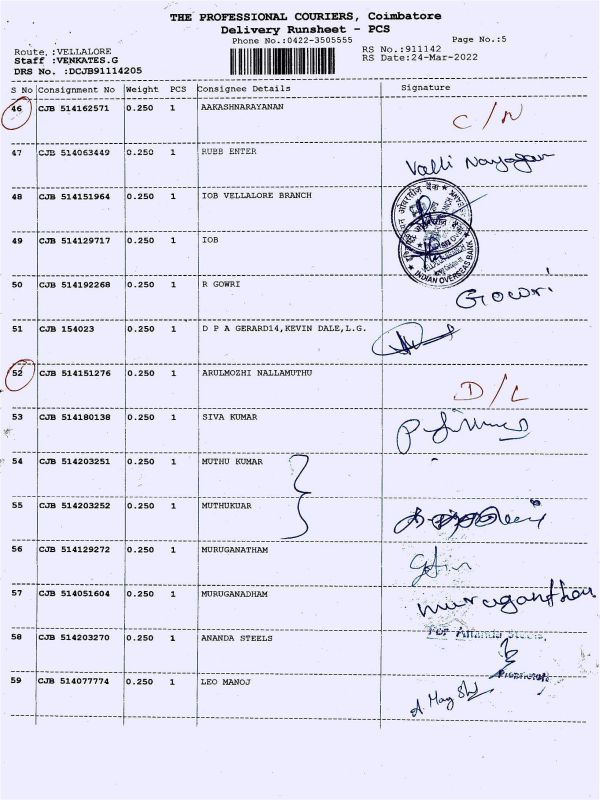 THE PROFESSIONAL COURIERS, Coimbatore
Delivery Runsheet - PCS
Phone No.:0422-3505555 Page No.:5
Route :VELLALORE RS No.:911142
Staff :VENKATES.G RS Date:24-Mar-2022
DRS No. :DCJB91114205
S No Consignment No Weight PCS Consignee Details Signature
46 CJB 514162571 0.250 1 AAKASHNARAYANAN
C/N
47 CJB 514063449 0.250 1 RUBB ENTER
Valli Nayagan
48 CJB 514151964 0.250 1 IOB VELLALORE BRANCH
49 CJB 514129717 0.250 1 IOB
INDIAN OVERSEAS BANK
50 CJB 514192268 0.250 1 R GOWRI
Gowri
51 CJB 154023 0.250 1 D P A GERARD14,KEVIN DALE,L.G.
52 CJB 514151276 0.250 1 ARULMOZHI NALLAMUTHU
D/L
53 CJB 514180138 0.250 1 SIVA KUMAR
54 CJB 514203251 0.250 1 MUTHU KUMAR
55 CJB 514203252 0.250 1 MUTHUKUAR
56 CJB 514129272 0.250 1 MURUGANATHAM
57 CJB 514051604 0.250 1 MURUGANADHAM
muruganthan
58 CJB 514203270 0.250 1 ANANDA STEELS
For Ananda Steels,
Proprietor
59 CJB 514077774 0.250 1 LEO MANOJ